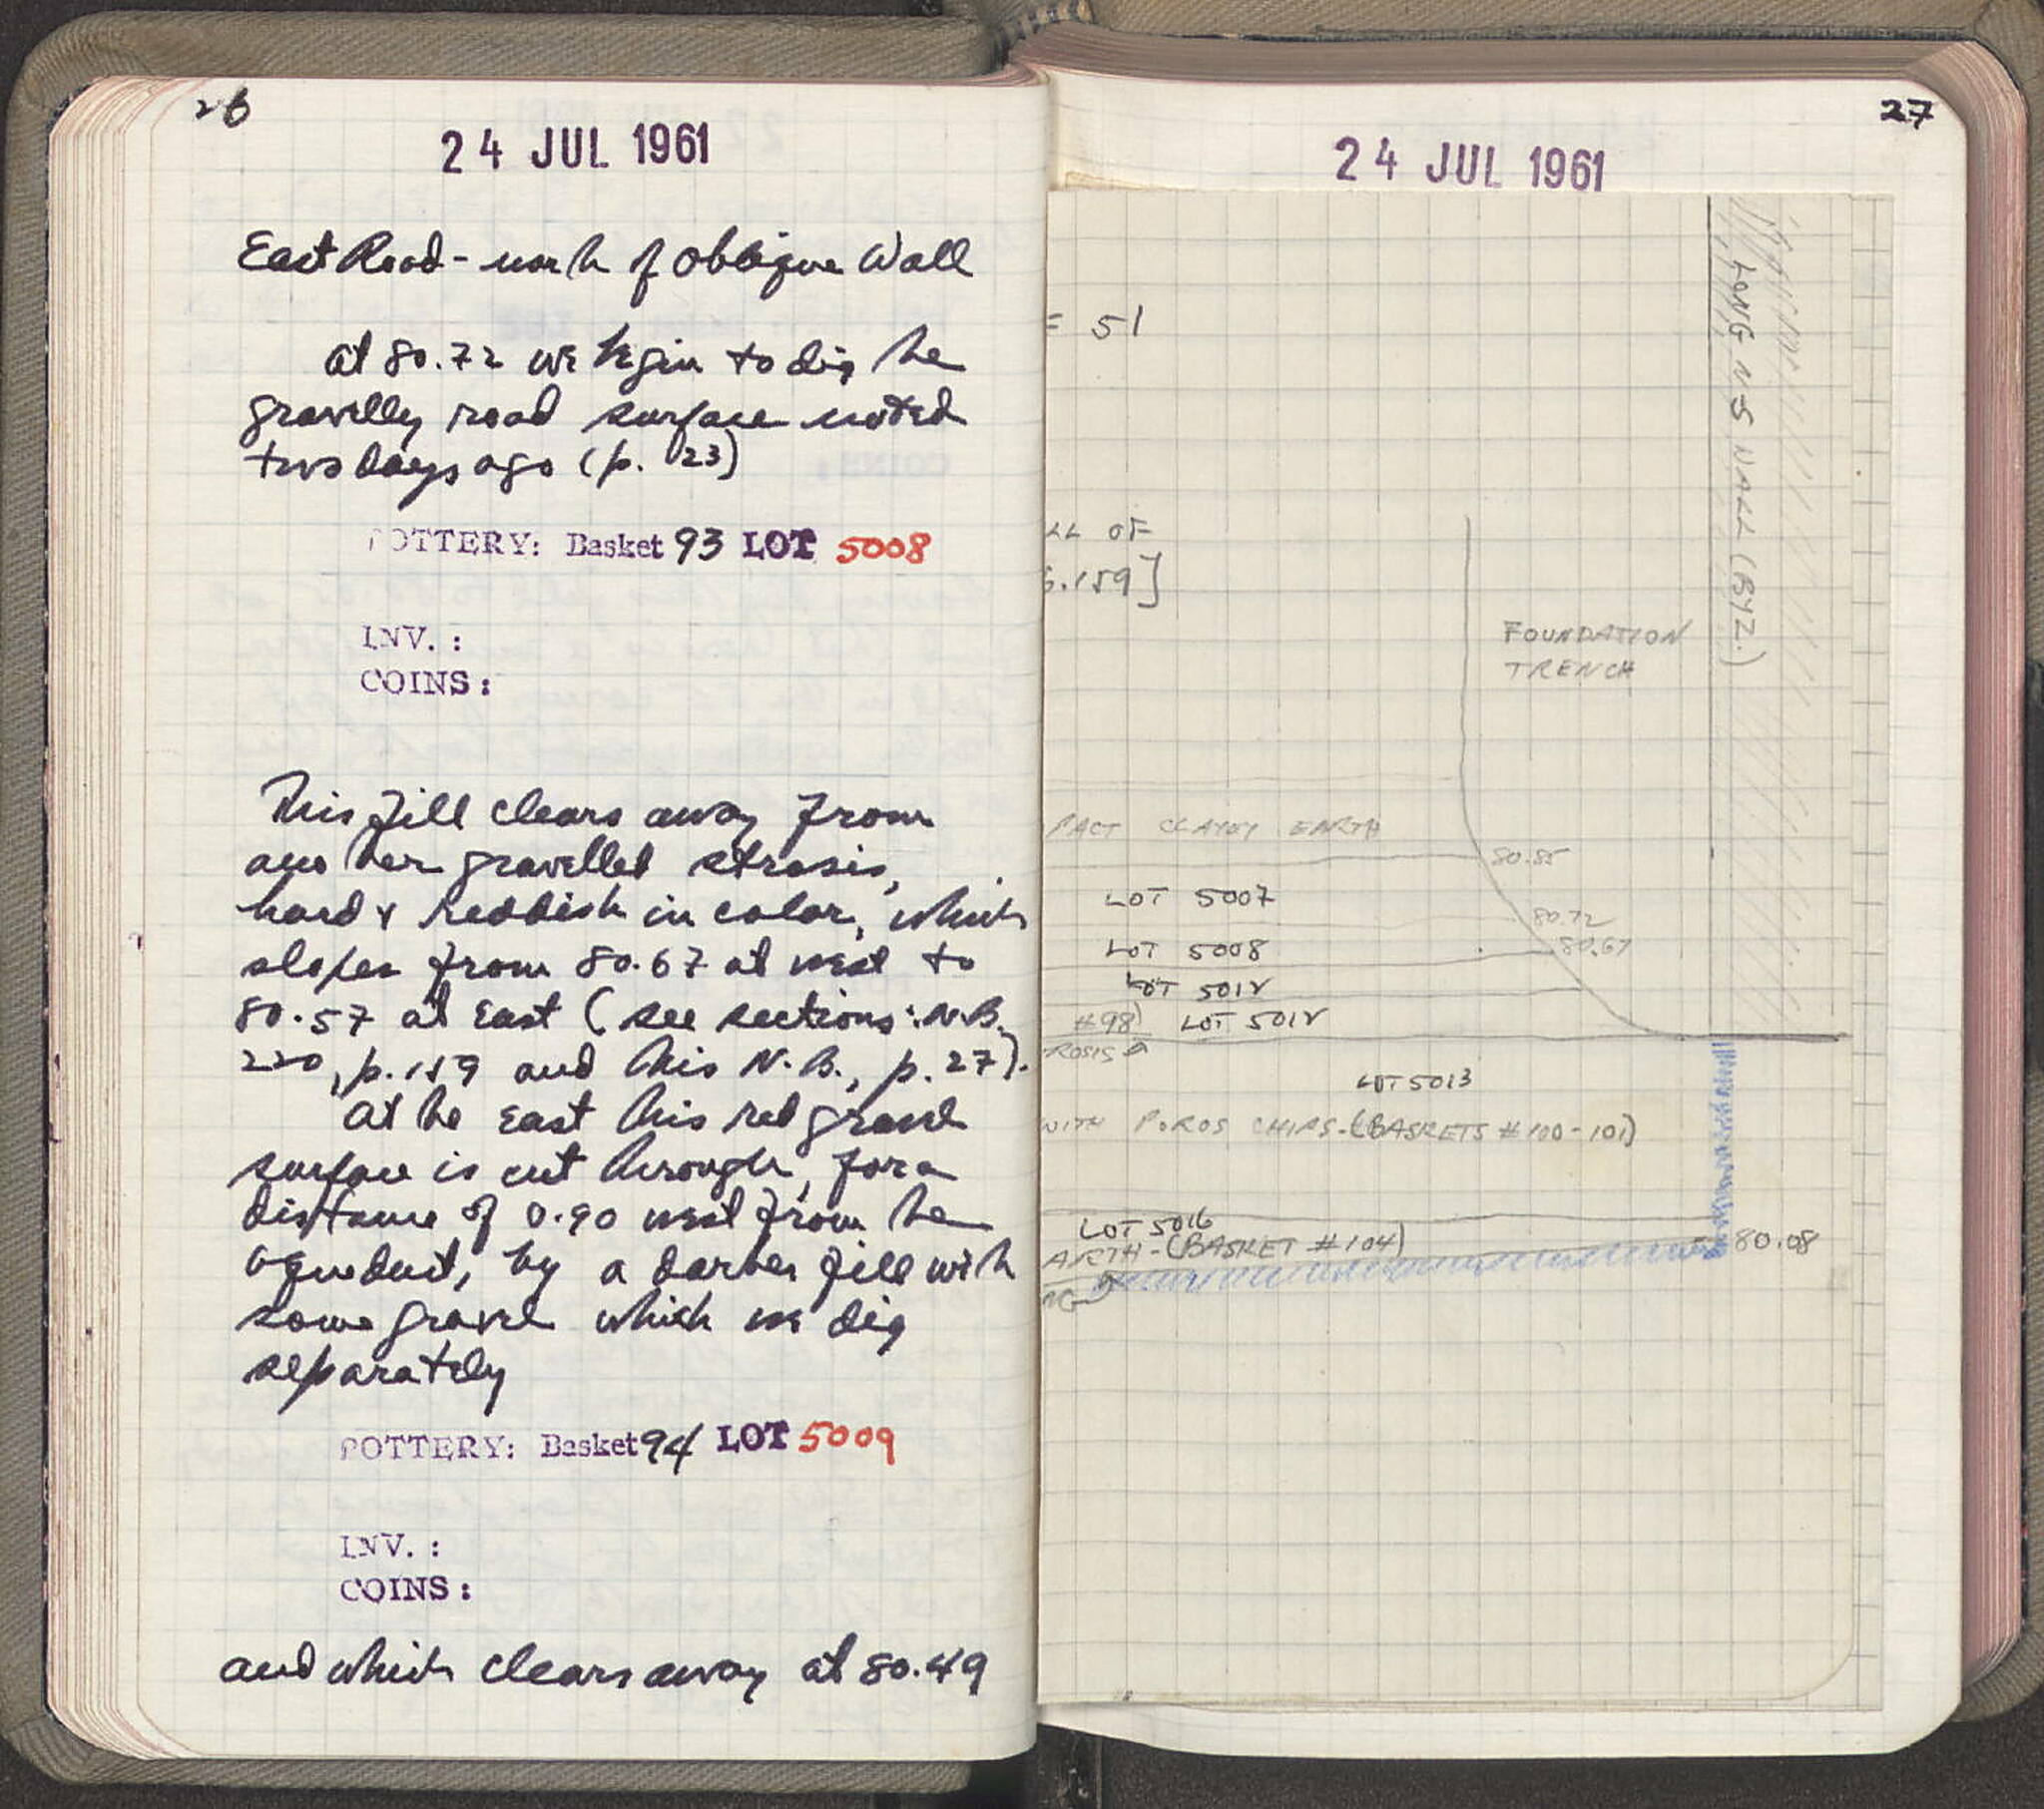 26
24 JUL 1961
East Road - north of Oblique Wall
at 80.72 we begin to dig the
gravelly road surface noted
two days ago (p. 23)
POTTERY: Basket 93 LOT 5008
INV. :
COINS:
This fill clears away from
another gravelled strosis,
hard & reddish in color, which
slopes from 80.67 at west to
80.57 at East (see sections: N.B.
220, p. 159 and this N.B., p. 27).
At the east this red gravel
surface is cut through, for a
distance of 0.90 west from the
aqueduct, by a darker fill with
some gravel which we dig
separately
POTTERY: Basket 94 LOT 5009
INV. :
COINS:
and which clears away at 80.49
27
24 JUL 1961
= 51
LL OF
.159]
LONG N-S WALL (BYZ.)
FOUNDATION
TRENCH
PACT CLAYEY EARTH
80.85
LOT 5007
80.72
LOT 5008
80.67
LOT 5012
#98) LOT 5012
ROSIS
LOT 5013
WITH POROS CHIPS-(BASKETS #100-101)
LOT 5016
ARTH-(BASKET #104)
80.08